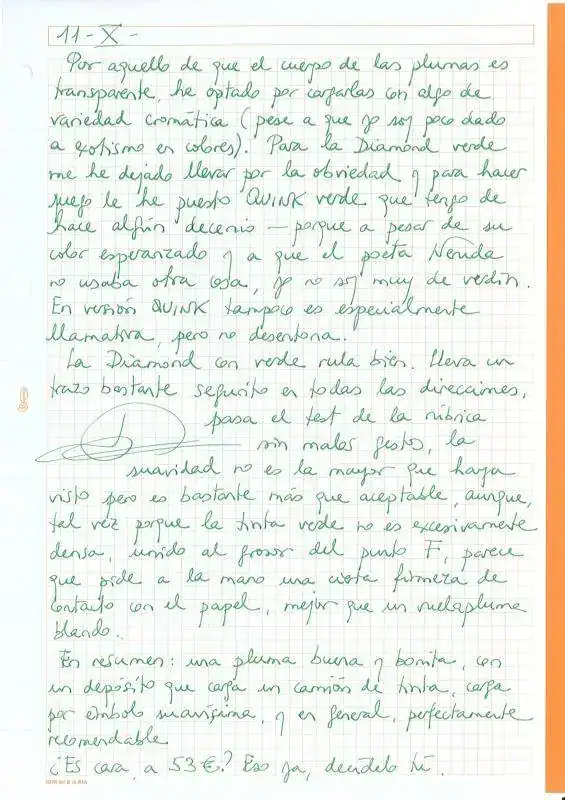 11-X-
Por aquello de que el cuerpo de las plumas es
transparente, he optado por cargarlas con algo de
variedad cromática (pese a que yo soy poco dado
a exotismo en colores). Para la Diamond verde
me he dejado llevar por la obviedad y para hacer
juego le he puesto QUINK verde que tengo de
hace algún decenio — porque a pesar de su
color esperanzado y a que el poeta Neruda
no usaba otra cosa, yo no soy muy de verdín.
En versión QUINK tampoco es especialmente
llamativa, pero no desentona.
La Diamond con verde rula bien. Lleva un
trazo bastante segurito en todas las direcciones,
pasa el test de la rúbrica
sin malos gestos, la
suavidad no es la mayor que haya
visto pero es bastante más que aceptable, aunque,
tal vez porque la tinta verde no es excesivamente
densa, unido al grosor del punto F, parece
que pide a la mano una cierta firmeza de
contacto con el papel, mejor que un vuelapluma
blando.
En resumen: una pluma buena y bonita, con
un depósito que carga un camión de tinta, carga
por émbolo suavísima, y en general, perfectamente
recomendable.
¿Es cara, a 53 €? Eso ya, decídelo tú.